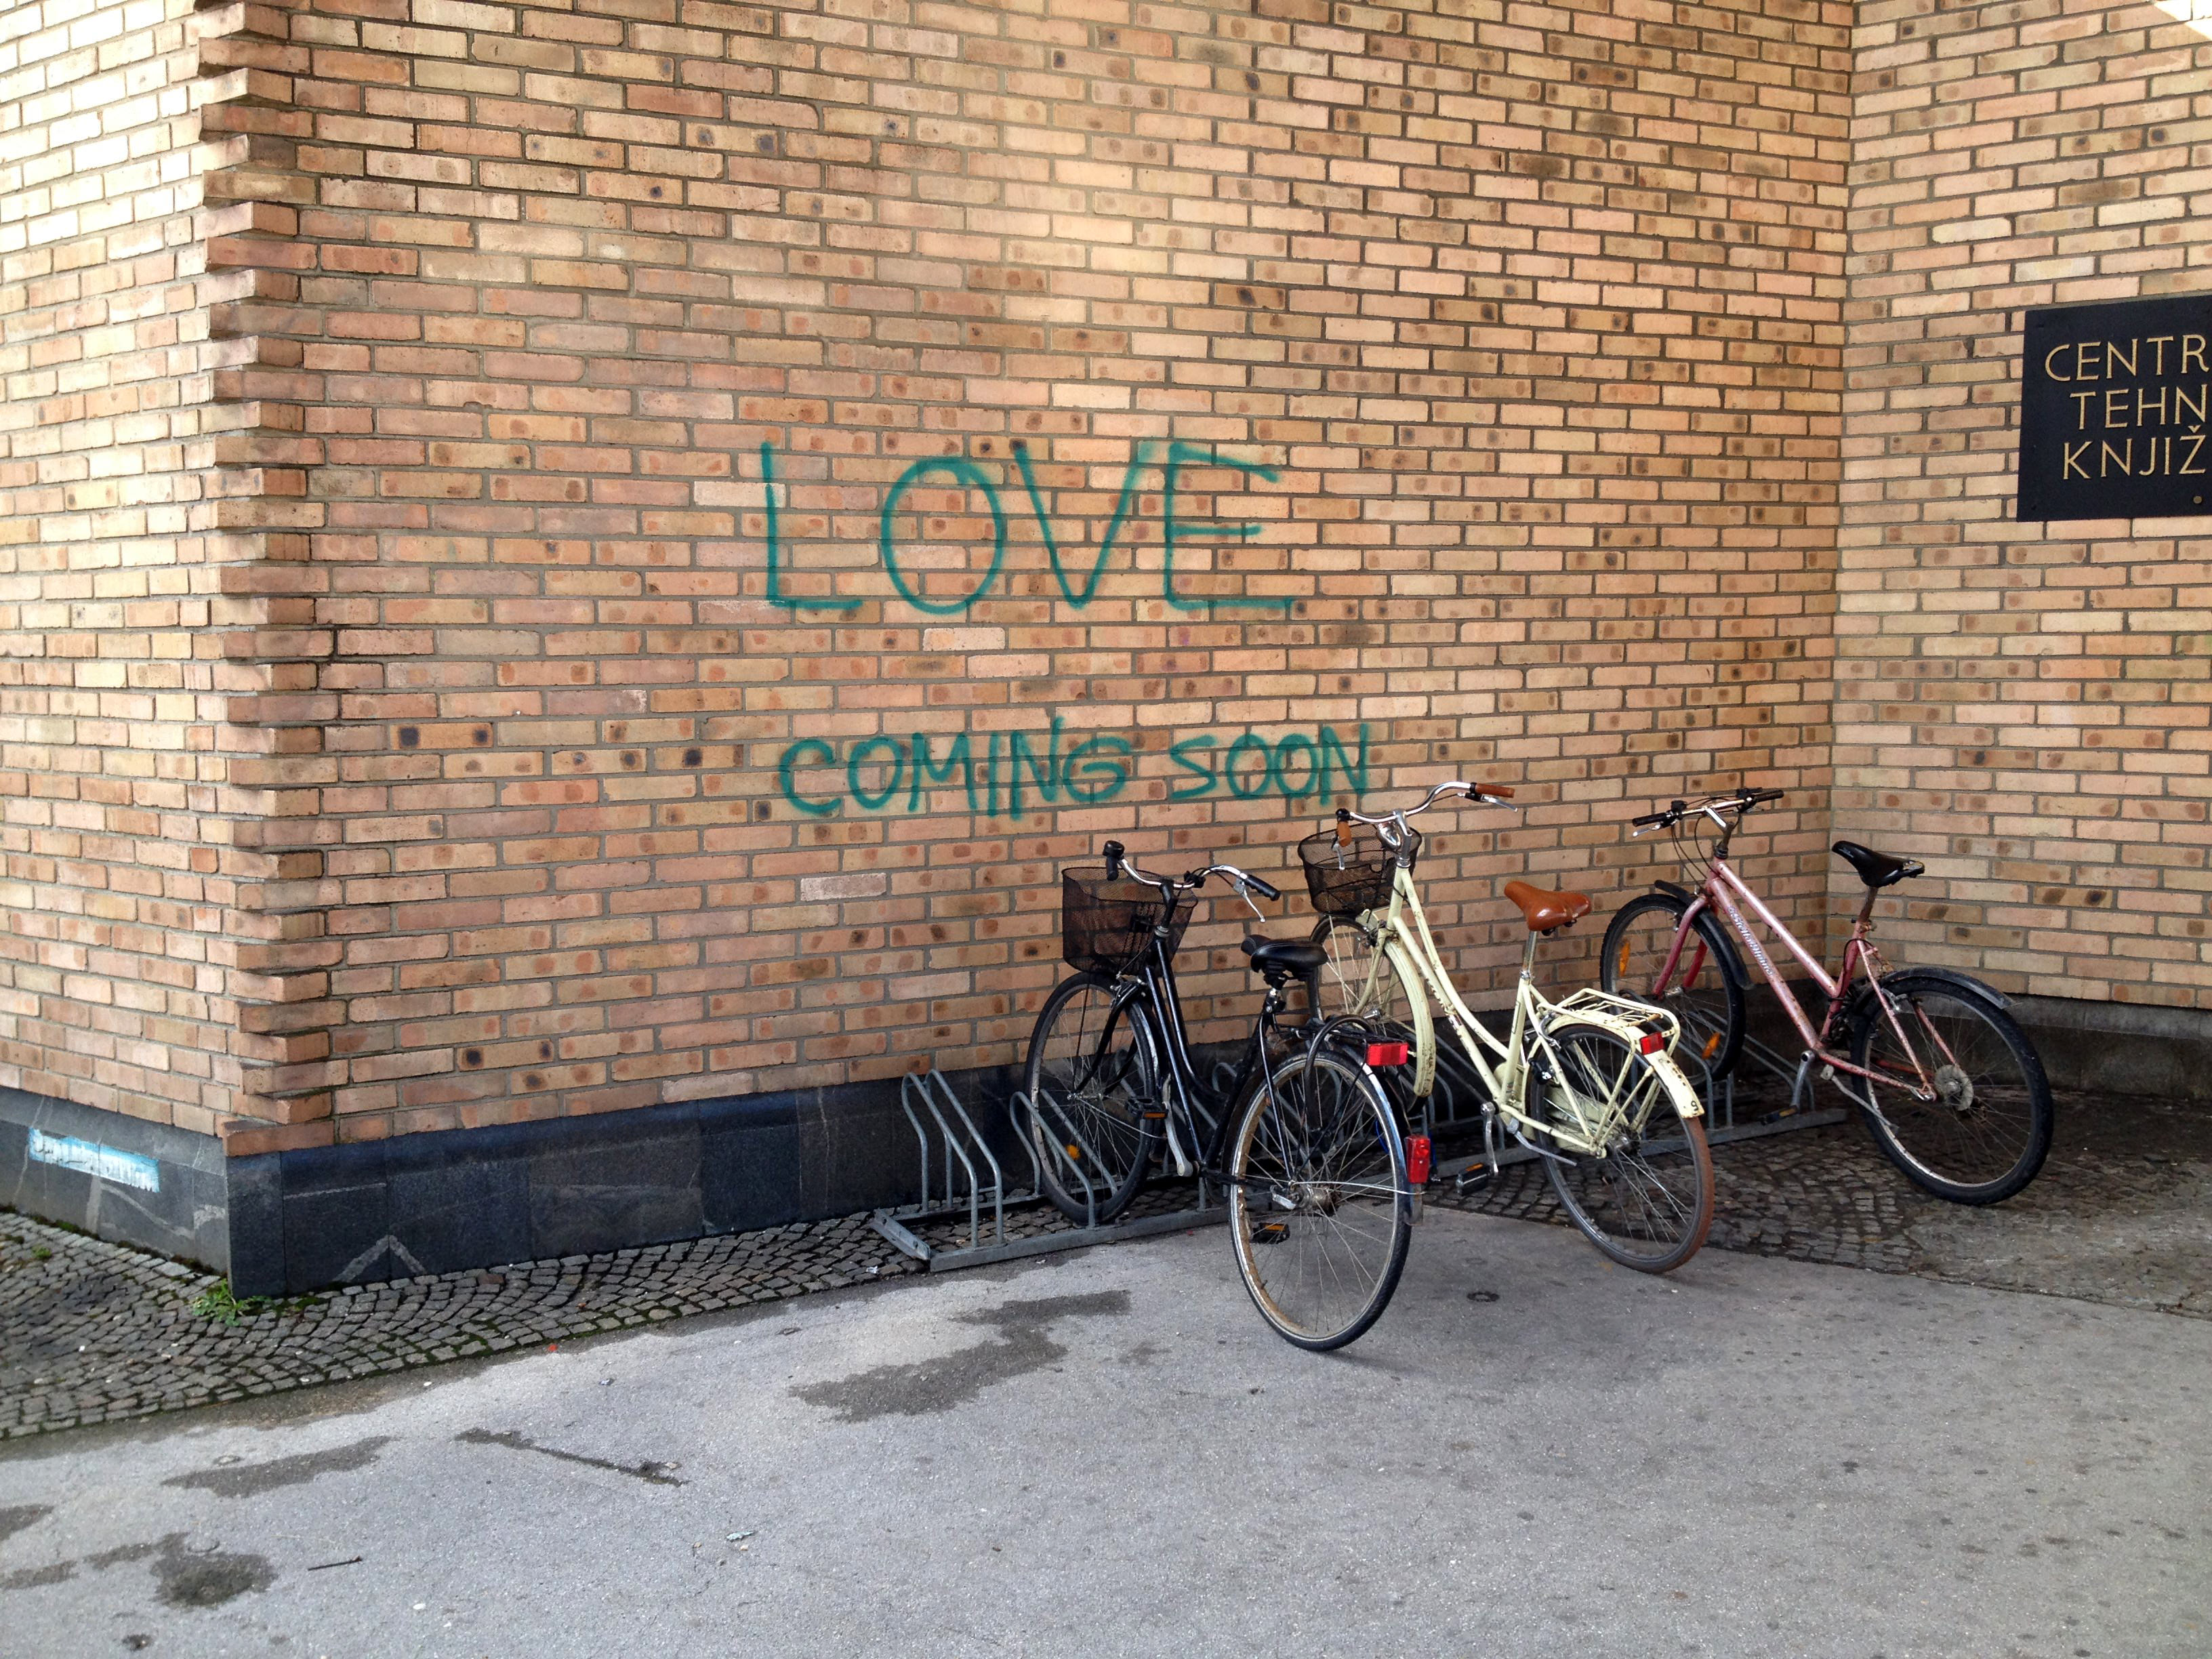 LOVE
COMING SOON
CENTR
TEHN
KNJIŽ